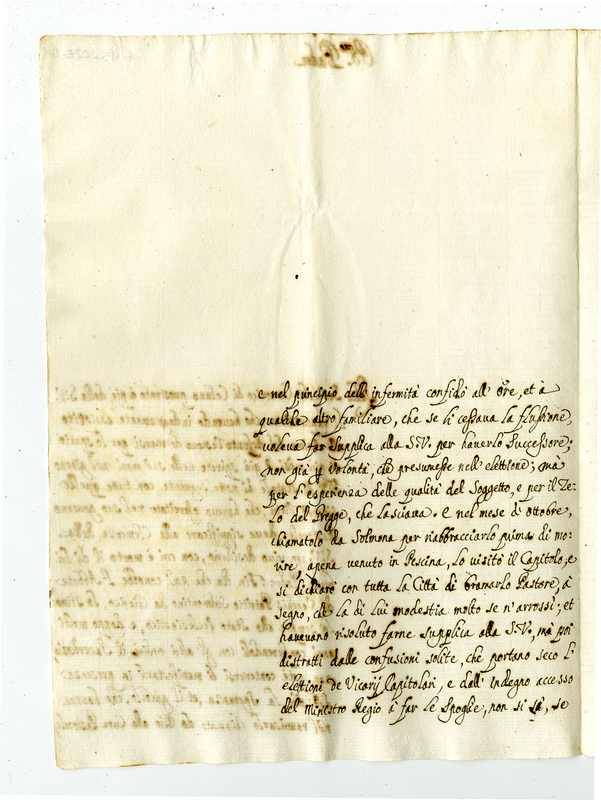 e nel principio dell'infermità confidò all' Ore, et à
qualche altro familiare, che se li cessava la flussione,
voleva far supplica alla S.V. per haverlo Successore;
non già p volontà, che presumesse nell'elettione; mà
per l'esperienza delle qualità del Soggetto, e per il Ze-
lo del Gregge, che lasciava. E nel mese di ottobre,
chiamatolo da Solmona per riabbracciarlo prima di mo-
rire, apena venuto in Pescina, lo visitò il Capitolo, e
si dichiarò con tutta la Città di bramarlo Pastore, à
segno, che la di lui modestia molto se n'arrossì; et
havevano risoluto farne supplica alla S.V., mà poi
distratti dalle confusioni solite, che portano seco l'
elettioni de Vicarij Capitolari, e dall' indegno accesso
del Ministro Regio à far le spoglie, non si sà, se